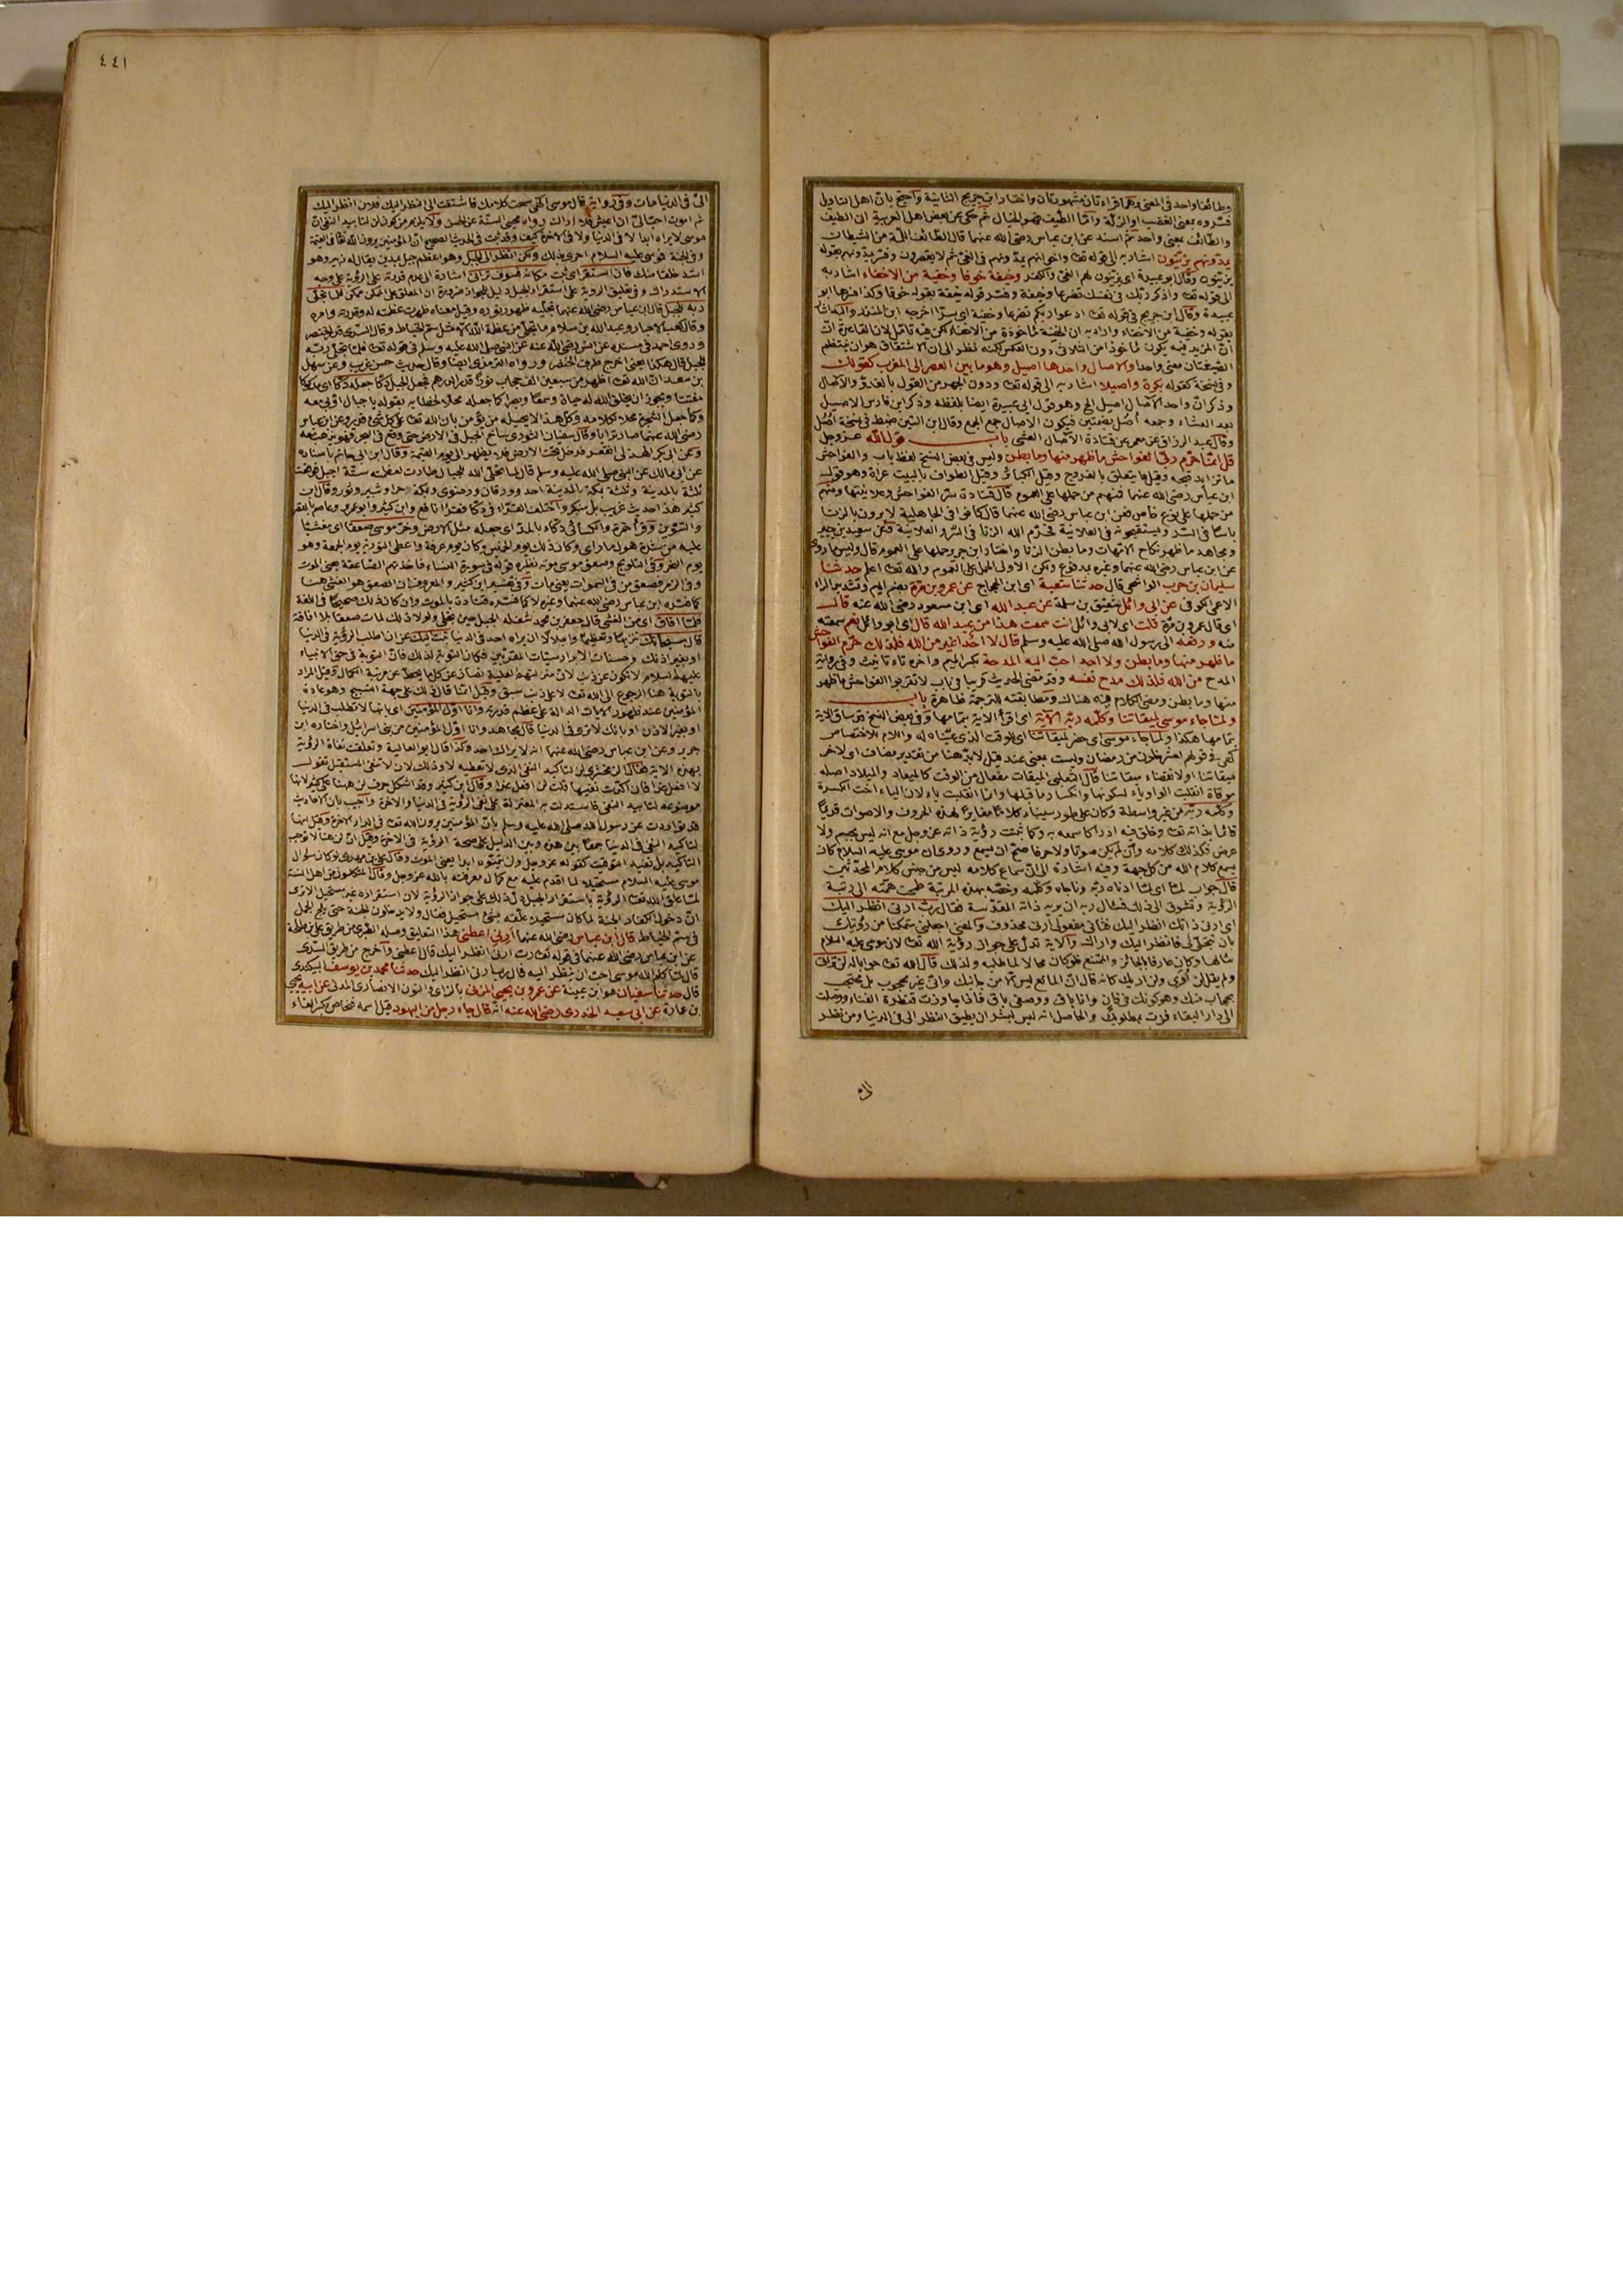 وطائف واحد في المعنى وهما قراءتان مشهورتان واختار ابن جرير الثانية واحتج بان اهل التأويل
فسروه بمعنى الغضب او الزلة واما الطيف فهو الخيال ثم حكى عن بعض اهل العربية ان الطيف
والطائف بمعنى واحد ثم اسند عن ابن عباس رضي الله عنهما قال الطائف اللمة من الشيطان
يمدونهم يزينون اشار به الى قوله تعا واخوانهم يمدونهم في الغي ثم لا يقصرون وفسر يمدونهم بقوله
يزينون وقال ابو عبيدة اي يزينون لهم الغي والكفر وخيفة خوفا وخفية من الاخفاء اشار به
الى قوله تعا واذكر ربك في نفسك تضرعا وخيفة وفسر قوله خيفة بقوله خوفا وكذا فسرها ابو
عبيدة وقال ابن جريج في قوله تعا ادعوا ربكم تضرعا وخفية اي سرا اخرجه ابن المنذر
بقوله وخفية من الاخفاء واراد به ان الخفية مأخوذة من الاخفاء لكن فيه تأمل لان القاعدة ان
ان المزيد فيه يكون مأخوذا من الثلاثي دون العكس لكنه نظر الى ان الاشتقاق هو ان ينتظم
الصيغتان معنى واحدا والآصال واحدها اصيل وهو ما بين العصر الى المغرب كقولك
وفي نسخة كقوله بكرة واصيلا اشار به الى قوله تعا ودون الجهر من القول بالغدو والآصال
وذكر ان واحد الآصال اصيل الخ وهو قول ابي عبيدة ايضا بلفظه وذكر ابن فارس الاصيل
بعد العشاء وجمعه اصل بضمتين فيكون الآصال جمع الجمع وقال ابن التين ضبط في نسخة اصل
وقال عبد الرزاق عن معمر عن قتادة الآصال العشي باب قول الله عز وجل
قل انما حرم ربي الفواحش ما ظهر منها وما بطن وليس في بعض النسخ لفظ باب والفواحش
ما تزايد قبحه وقيل ما يتعلق بالفروج وقيل الكبائر وقيل الطواف بالبيت عراة وهو قول
ابن عباس رضي الله عنهما فمنهم من حملها على العموم قال قتادة سر الفواحش وعلانيتها ومنهم
من حملها على نوع خاص فعن ابن عباس رضي الله عنهما قال كانوا في الجاهلية لا يرون بالزنا
باسا في السر ويستقبحونه في العلانية فحرم الله الزنا في السر والعلانية وعن سعيد بن جبير
ومجاهد ما ظهر نكاح الامهات وما بطن الزنا واختار ابن جرير حملها على العموم قال وليس ما روي
عن ابن عباس رضي الله عنهما وغيره بمدفوع ولكن الاولى الحمل على العموم والله تعا اعلم حدثنا
سليمان بن حرب الواشحي قال حدثنا شعبة اي ابن الحجاج عن عمرو بن مرة بضم الميم وتشديد الراء
الاعمى الكوفي عن ابي وائل شقيق بن سلمة عن عبد الله اي ابن مسعود رضي الله عنه قال
اي قال عمرو بن مرة قلت اي لابي وائل انت سمعت هذا من عبد الله قال اي ابو وائل نعم سمعته
منه ورفعه الى رسول الله صلى الله عليه وسلم قال لا احد اغير من الله فلذلك حرم الفواحش
ما ظهر منها وما بطن ولا احد احب اليه المدحة بكسر الميم واخره تاء تأنيث وفي رواية
المدح من الله فلذلك مدح نفسه وقد مضى الحديث قريبا في باب لا تقربوا الفواحش ما ظهر
منها وما بطن ومضى الكلام فيه هناك ومطابقته للترجمة ظاهرة باب
ولما جاء موسى لميقاتنا وكلمه ربه الآية اي اقرأ الاية بتمامها وفي بعض النسخ ساق الاية
بتمامها هكذا ولما جاء موسى اي حضر لميقاتنا اي للوقت الذي عيناه له واللام للاختصاص
كهي في قولهم لعشر خلون من رمضان وليست بمعنى عند قيل لا بد هنا من تقدير مضاف اي لاخر
ميقاتنا او لانقضاء ميقاتنا قال الثعلبي الميقات مفعال من الوقت كالميعاد والميلاد اصله
موقات انقلبت الواو ياء لسكونها وانكسار ما قبلها وانما انقلبت ياء لان الياء اخت الكسرة
وكلمه ربه من غير واسطة وكان على طور سيناء كلاما مغايرا لهذه الحروف والاصوات قديما
قائما بذاته تعا وخلق فيه ادراكا سمعه به وكما ثبتت رؤية ذاته عز وجل مع انه ليس بجسم ولا
عرض فكذلك كلامه وان لم يكن صوتا ولا حرفا صح ان يسمع وروي ان موسى عليه السلام كان
يسمع كلام الله من كل جهة وفيه اشارة الى ان سماع كلامه ليس من جنس كلام المحدثين
قال جواب لما اي لما ادناه ربه وناجاه وكلمه وخصه بهذه المرتبة طمحت همته الى رتبة
الرؤية وتشوق الى ذلك فسأل ربه ان يريه ذاته المقدسة فقال رب ارني انظر اليك
اي ارني ذاتك انظر اليك فثاني مفعولي ارني محذوف والمعنى اجعلني متمكنا من رؤيتك
بان تتجلى لي فانظر اليك واراك والآية تدل على جواز رؤية الله تعا لان موسى عليه السلام
سألها وكان عارفا بالجائز والممتنع فلو كان محالا لما طلبه ولذلك قال الله تعا جوابا له لن تراني
ولم يقل لن أرى ولن اريك كانه قال ان المانع ليس الا من جانبك واني غير محجوب بل محتجب
بحجاب منك وهو كونك في فان وانا باق ووصفي باق فاذا جاوزت قنطرة الفناء ووصلت
الى دار البقاء فزت بمطلوبك والحاصل انه ليس لبشر ان يطيق النظر الي في الدنيا ومن نظر
٤٤١
الي في الدنيا مات وفي رواية قال موسى الهي سمعت كلامك فاشتقت الى النظر اليك فلان انظر اليك
ثم اموت احب الي ان اعيش ولا اراك رواه محيي السنة عن الحسن ولا يلزم من كون لن لتأبيد النفي ان
موسى لا يراه ابدا لا في الدنيا ولا في الاخرة كيف وقد ثبت في الحديث الصحيح ان المؤمنين يرون الله تعا في القيمة
وفي الجنة فموسى عليه السلام احرى بذلك ولكن انظر الى الجبل وهو اعظم جبل بمدين يقال له زبير وهو
اشد خلقا منك فان استقر اي ثبت مكانه فسوف تراني اشارة الى عدم قدرته على الرؤية على وجه
الاستدراك وفي تعليق الرؤية على استقرار الجبل دليل للجواز ضرورة ان المعلق على الممكن ممكن فلما تجلى
ربه للجبل قال ابن عباس رضي الله عنهما تجليه ظهور نوره وقيل معناه ظهرت عظمته له وقدرته وامره
وقال كعب الاحبار وعبد الله بن سلام ما تجلى من عظمة الله الا مثل سم الخياط وقال السدي قدر الخنصر
وروى احمد في مسنده عن انس رضي الله عنه عن النبي صلى الله عليه وسلم في قوله تعا فلما تجلى ربه
للجبل قال هكذا يعني اخرج طرف الخنصر ورواه الترمذي ايضا وقال حديث حسن غريب وعن سهل
بن سعد ان الله تعا اظهر من سبعين الف حجاب نورا قدر الدرهم فجعل الجبل دكا جعله دكا اي مدكوكا
مفتتا ويجوز ان يخلق الله له حياة وسمعا وبصرا كما جعله محلا لخطابه بقوله يا جبال اوبي معه
وكما جعل الشجرة محلا لكلامه وكل هذا لا يحيله من يؤمن بان الله تعا على كل شيء قدير وعن ابن عباس
رضي الله عنهما صار ترابا وقال سفيان الثوري ساخ الجبل في الارض حتى وقع في البحر فهو يذهب معه
وعن ابي بكر الهذلي انقعر فدخل تحت الارض فلا يظهر الى يوم القيمة وقال ابن ابي حاتم باسناده
عن ابي مالك عن النبي صلى الله عليه وسلم قال لما تجلى الله للجبال طارت لعظمته ستة اجبل فوقعت
ثلثة بالمدينة وثلثة بمكة بالمدينة احد وورقان ورضوى وبمكة حراء وثبير وثور وقال ابن
كثير هذا حديث غريب بل منكر واختلف القراء في دكا فقرأ نافع وابن كثير وابو عمرو وعاصم بالقصر
والتنوين وقرأ حمزة والكسائي دكاء بالمد اي جعله مثل الارض وخر موسى صعقا اي مغشيا
عليه من شدة هول ما راى وكان ذلك يوم الخميس وكان يوم عرفة واعطي التورية يوم الجمعة وهو
يوم النحر وفي التلويح وصعق موسى موته نظيره قوله في سورة النساء فاخذتهم الصاعقة يعني الموت
وفي الزمر فصعق من في السموات يعني مات وفي تفسير ابن كثير والمعروف ان الصعق هو الغشي هنا
كما فسره ابن عباس رضي الله عنهما وغيره لا كما فسره قتادة بالموت وان كان ذلك صحيحا في اللغة
فلما افاق اي من الغشي قال جعفر بن محمد شغله الجبل حين تجلى ولولا ذلك لمات صعقا بلا افاقة
قال سبحانك تنزيها وتعظيما واجلالا ان يراه احد في الدنيا تبت اليك عن ان اطلب الرؤية في الدنيا
او بغير اذنك وحسنات الابرار سيئات المقربين فكان التوبة لذلك فان التوبة في حق الانبياء
عليهم السلام لا تكون عن ذنب لان منزلتهم العلية تصان عن كل ما يحط عن مرتبة الكمال وقيل المراد
بالتوبة هنا الرجوع الى الله تعا لا على ذنب سبق وقيل انما قال ذلك على جهة التسبيح وهو عادة
المؤمنين عند ظهور الايات الدالة على عظم قدرته وانا اول المؤمنين اي بانها لا تطلب في الدنيا
او بغير الاذن او بانك لا ترى في الدنيا قال مجاهد وانا اول المؤمنين من بني اسرائيل واختاره ابن
جرير وعن ابن عباس رضي الله عنهما انه لا يراك احد وكذا قال ابو العالية وتعلقت نفاة الرؤية
بهذه الاية فقال الزمخشري لن لتأكيد النفي الذي لا تعطيه لا وذلك لان لا تنفي المستقبل تقول
لا افعل غدا فان اكدت نفيها قلت لن افعل غدا وقال ابن كثير وقد اشكل حرف لن ههنا على كثير لانها
موضوعة لتأبيد النفي فاستدلت به المعتزلة على نفي الرؤية في الدنيا والاخرة واجيب بان الاحاديث
قد تواردت عن رسول الله صلى الله عليه وسلم بان المؤمنين يرون الله تعا في الدار الاخرة وقيل انها
لتأكيد النفي في الدنيا جمعا بين هذه وبين الدليل على صحة الرؤية في الاخرة وقيل ان لن هنا لا توجب
التأكيد بل تفيد التوقيت كقوله عز وجل ولن يتمنوه ابدا يعني الموت وقال علي بن مهدي لو كان سؤال
موسى عليه السلام مستحيلا لما اقدم عليه مع كمال معرفته بالله عز وجل وقال المتكلمون من اهل السنة
لما علق الله تعا الرؤية باستقرار الجبل دل ذلك على جواز الرؤية لان استقراره غير مستحيل الا ترى
ان دخول الكفار الجنة لما كان مستحيلا علقه بشيء مستحيل فقال ولا يدخلون الجنة حتى يلج الجمل
في سم الخياط قال ابن عباس رضي الله عنهما ارني اعطني هذا التعليق وصله الطبري من طريق علي بن طلحة
عن ابن عباس رضي الله عنهما في قوله تعا رب ارني انظر اليك قال اعطني واخرج من طريق السدي
قال لما كلم الله موسى احب ان ينظر اليه قال رب ارني انظر اليك حدثنا محمد بن يوسف البيكندي
قال حدثنا سفيان هو ابن عيينة عن عمرو بن يحيى المزني بالزاي والنون الانصاري المدني عن ابيه يحيى
بن عمارة عن ابي سعيد الخدري رضي الله عنه انه قال جاء رجل من اليهود قيل اسمه فنحاص بكسر الفاء